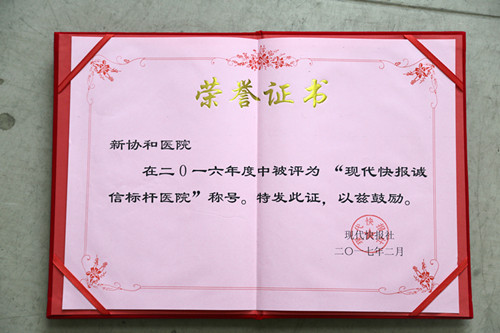 荣誉证书
新协和医院
在二0一六年度中被评为“现代快报诚
信标杆医院”称号。特发此证，以兹鼓励。
现代快报社
二〇一七年二月